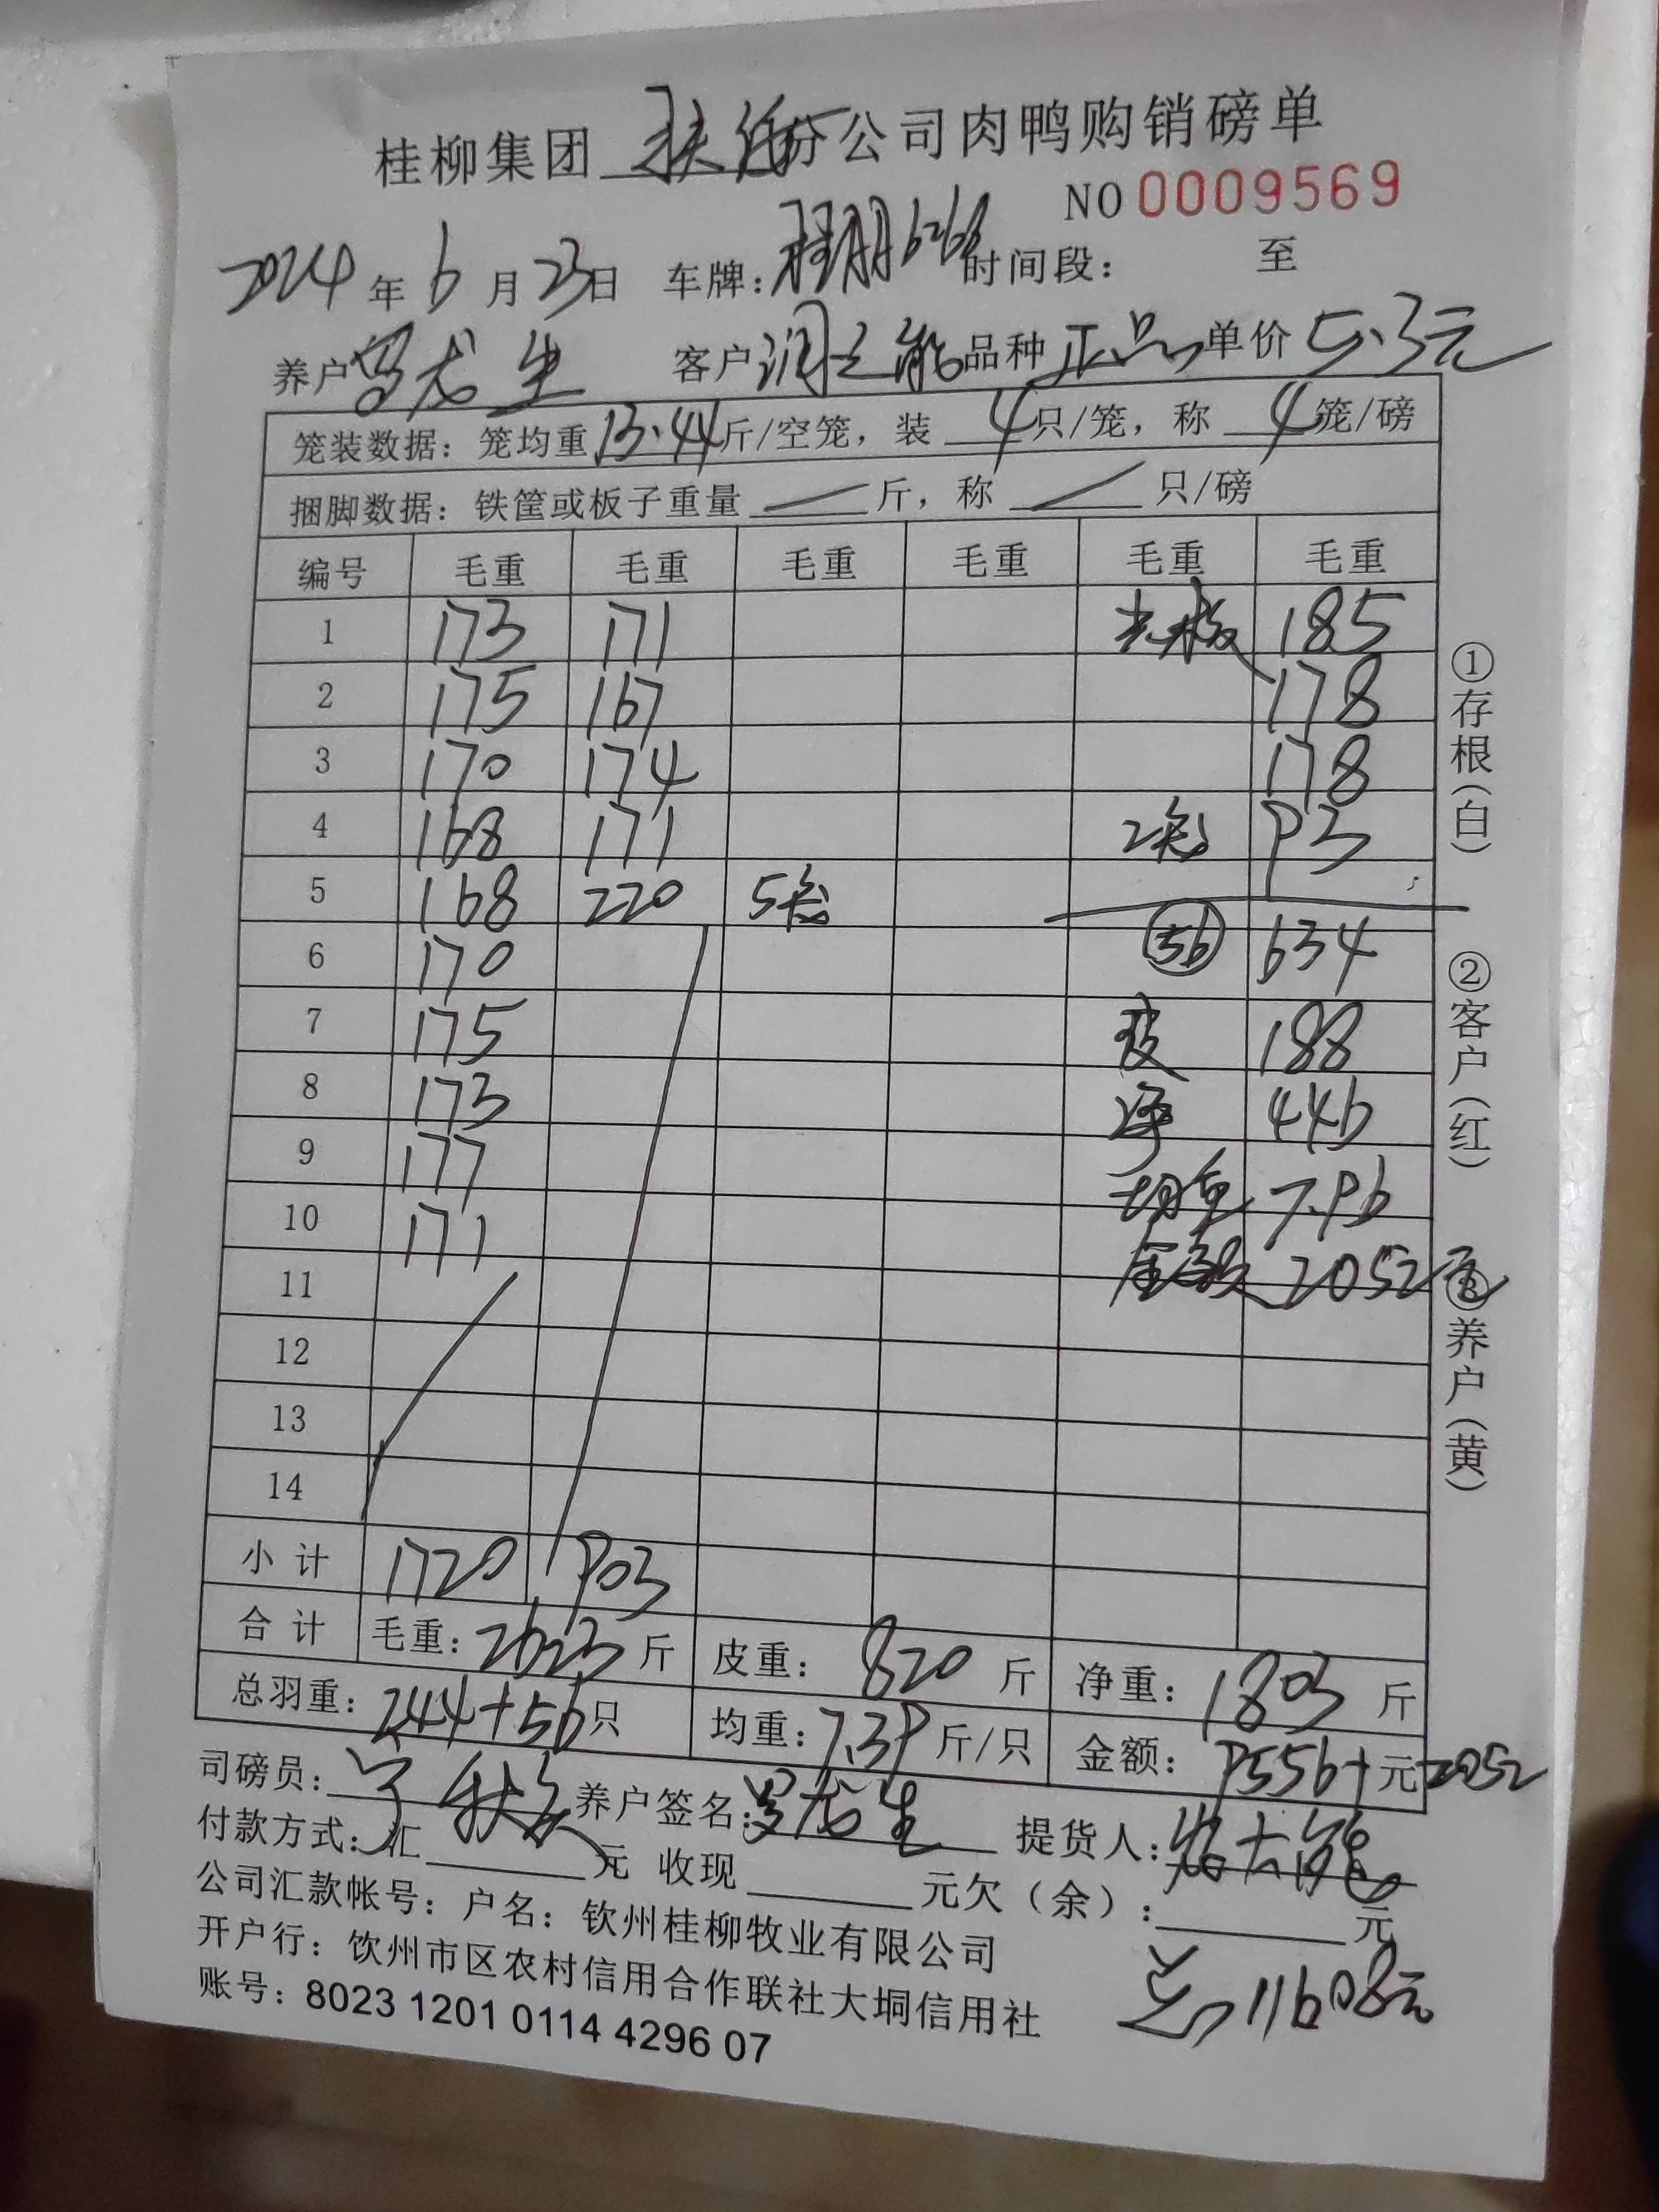 桂柳集团 扶绥分公司肉鸭购销磅单
NO 0009569
2024 年 6 月 23 日 车牌: 6268 时间段: 至
养户 罗龙生 客户 润之能 品种 正品 单价 5.3元
笼装数据: 笼均重 13.44 斤/空笼, 装 4 只/笼, 称 4 笼/磅
捆脚数据: 铁筐或板子重量 — 斤, 称 — 只/磅
编号 毛重 毛重 毛重 毛重 毛重 毛重
1 173 171 185
2 175 167 178
3 170 174 178
4 168 171 2笼 93
5 168 220 5笼
6 170 56 634
7 175 皮 188
8 173 净 446
9 177 均重 7.96
10 171 金额 2052元
11
12
13
14
小计 1720 903
合计 毛重: 2623 斤 皮重: 820 斤 净重: 1803 斤
总羽重: 244+56 只 均重: 7.39 斤/只 金额: 9556+ 元 2052
司磅员: 养户签名: 罗龙生 提货人:
付款方式: 汇 元 收现 元欠(余): 元
公司汇款帐号: 户名: 钦州桂柳牧业有限公司
开户行: 钦州市区农村信用合作联社大垌信用社
账号: 8023 1201 0114 4296 07
总 11608元
①存根(白)
②客户(红)
③养户(黄)